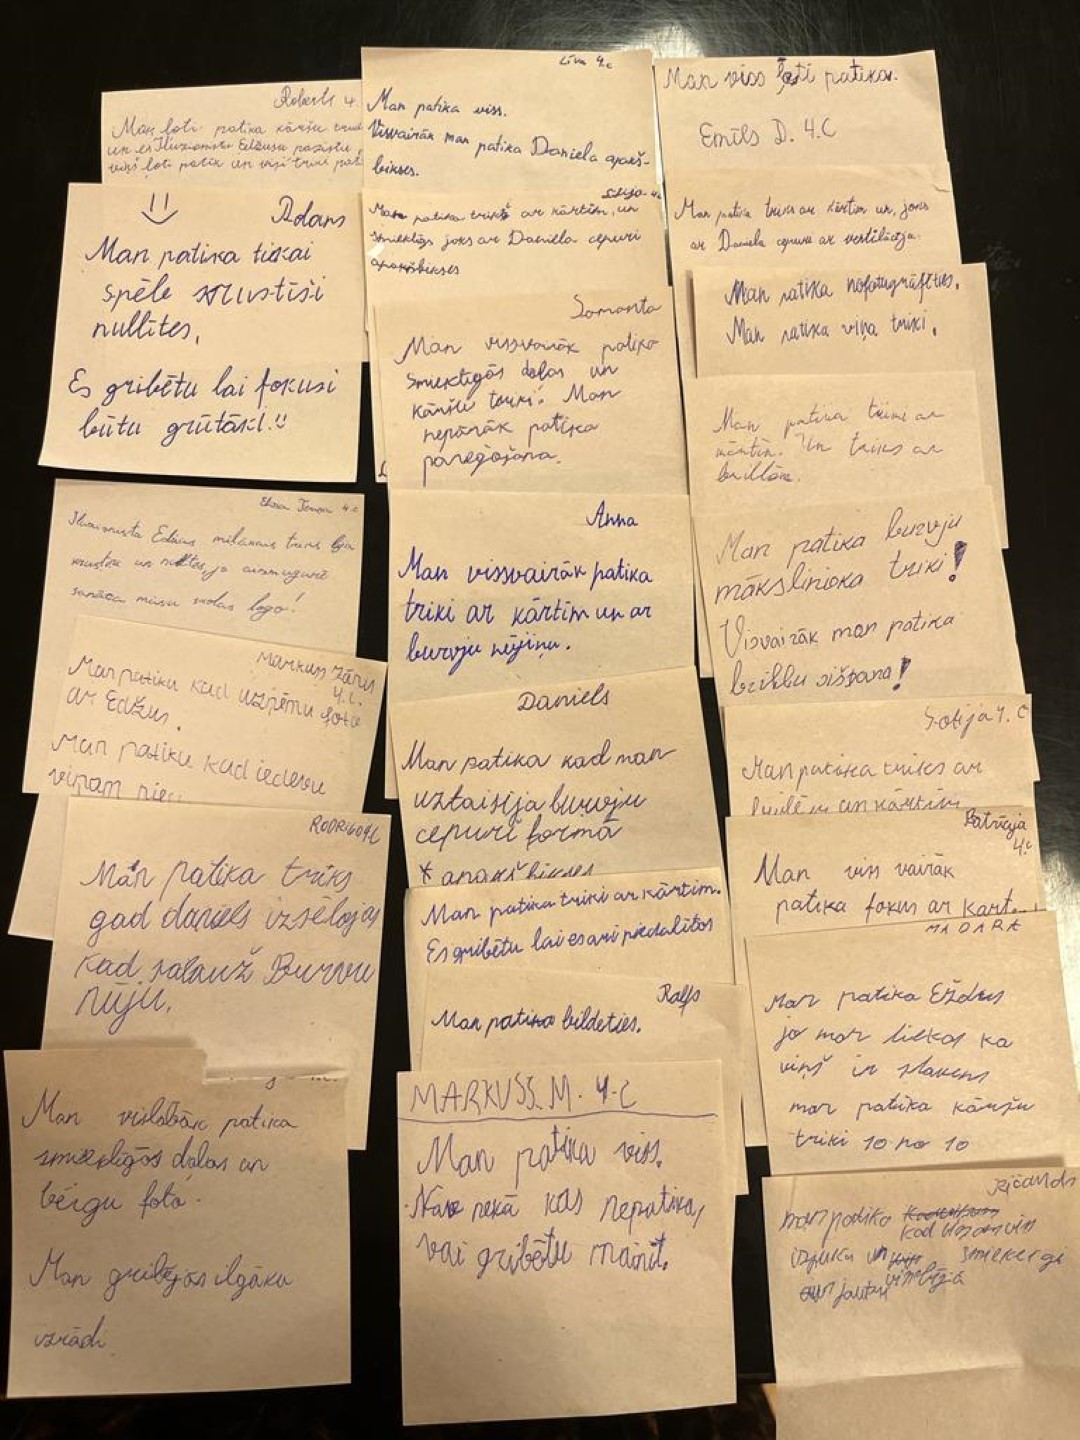 Roberts 4.
Man ļoti patika kāršu
un es Iluzionistu Edžusu pazīstu
viņš ļoti patīk un visi triki pat
Adans
Man patika tikai
spēle krustiši
nullītes,
Es gribētu lai fokusi
būtu grūtāki!
4.c
Iluzionista Edžus mīļākais
krustiņ un nullītes, jo
sanāca mūsu skolas logo!
Markuss Zānis
4.c.
Man patiku kad uzņēmu foto
ar Edžus.
Man patiku kad iedevu
viņam
RODRIGO 4.C
Man patika triks
gad daniels izsēlojas
kad salauž Burvu
nūju.
Man vislabāk patika
smieklīgās daļas un
beigu foto.
Man gribējās ilgāku
izrādi
Līva 4.c
Man patika viss.
Visvairāk man patika Daniela apakš-
bikses.
Man patika triks ar kārtīm, un
smieklīgs joks ar Daniela cepuri
apakšbikses
Samanta
Man vissvairāk patika
smieklīgās daļas un
kāršu triki. Man
nepārāk patika
pareģošana.
Anna
Man vissvairāk patika
triki ar kārtīm un ar
burvju nūjiņu.
Daniels
Man patika kad man
uztaisīja burvju
cepuri formā
* apakš bikses
Man patika triki ar kārtīm.
Es gribētu lai es arī piedalītos
Ralfs
Man patika bildēties.
MARKUSS. M. 4.C
Man patika viss.
Nav nekā kas nepatika,
vai gribētu mainīt.
Man viss ļoti patika.
Emīls D. 4.C
Man patika triks ar kārtīm un, joks
ar Daniela cepure ar ventilāciju.
Man patika nofotogrāfēties.
Man patika viņa triki.
Man patika triks ar
Un triks ar
brillēm.
Man patika burvju
mākslinieka triki!
Visvairāk man patika
briļļu sišana!
Sofija 4.C
Man patika triks ar
un kārtīm
Patrīcija
4.c
Man viss vairāk
patika fokus ar kārt
MADARA
Man patika Eždus
jo man liekas ka
viņš ir slavens
man patika kāršu
triki 10 no 10
Ričards
man patika
kad
un smiekīgi
jautri